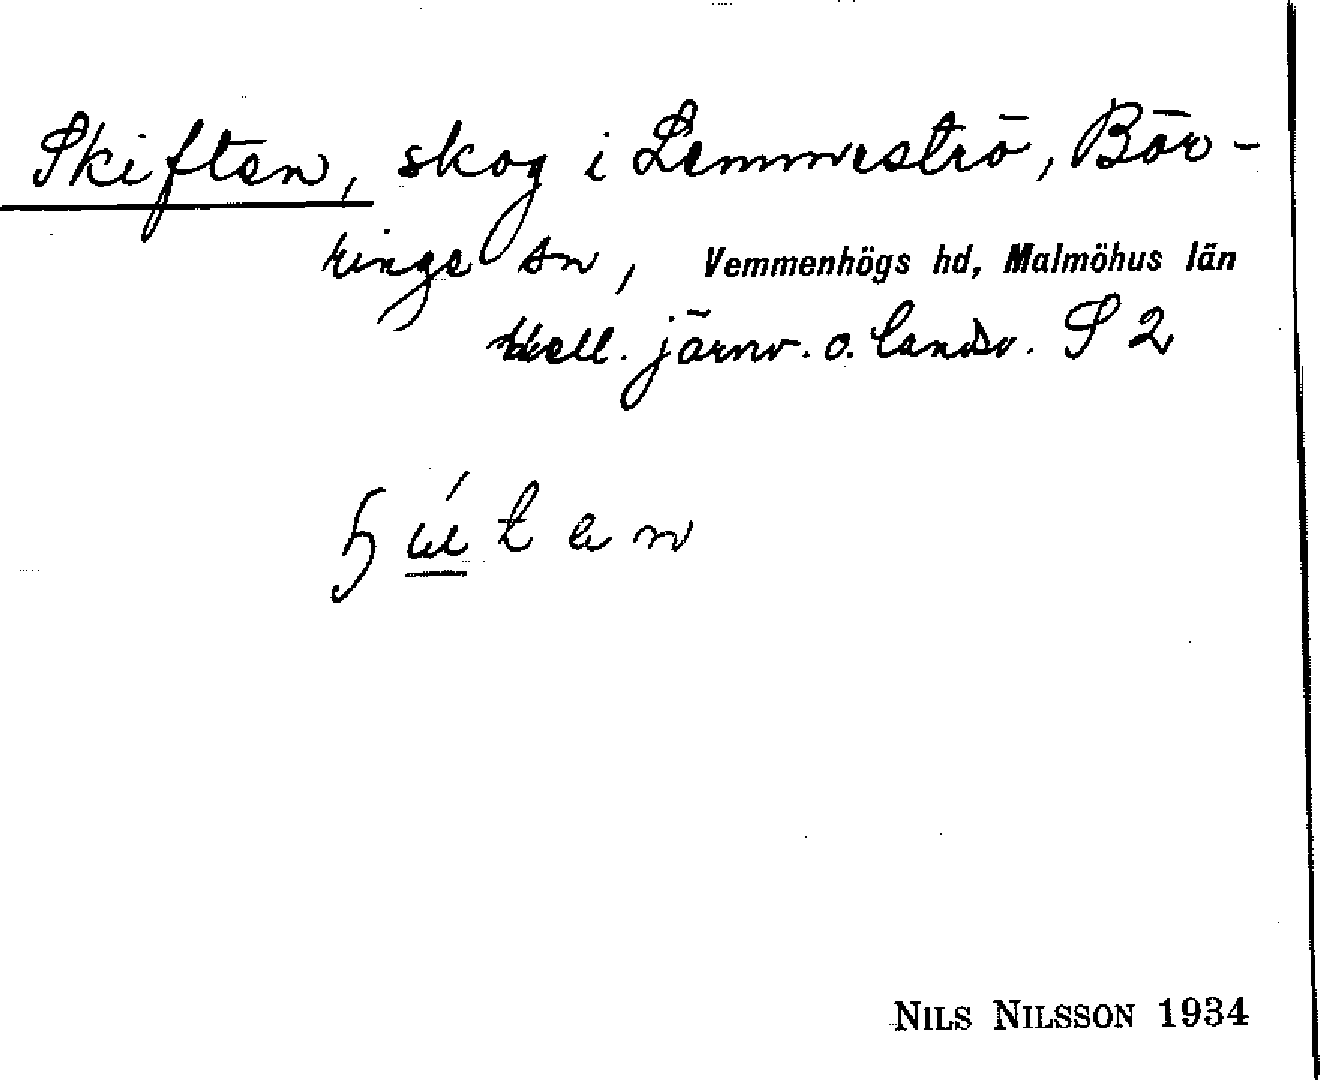 Skiften, skog i Lemmeströ, Bör-
ringe sn, Vemmenhögs hd, Malmöhus län
Mell. järnv. o. landsv. S 2
ɧ ú t e n
NILS NILSSON 1934